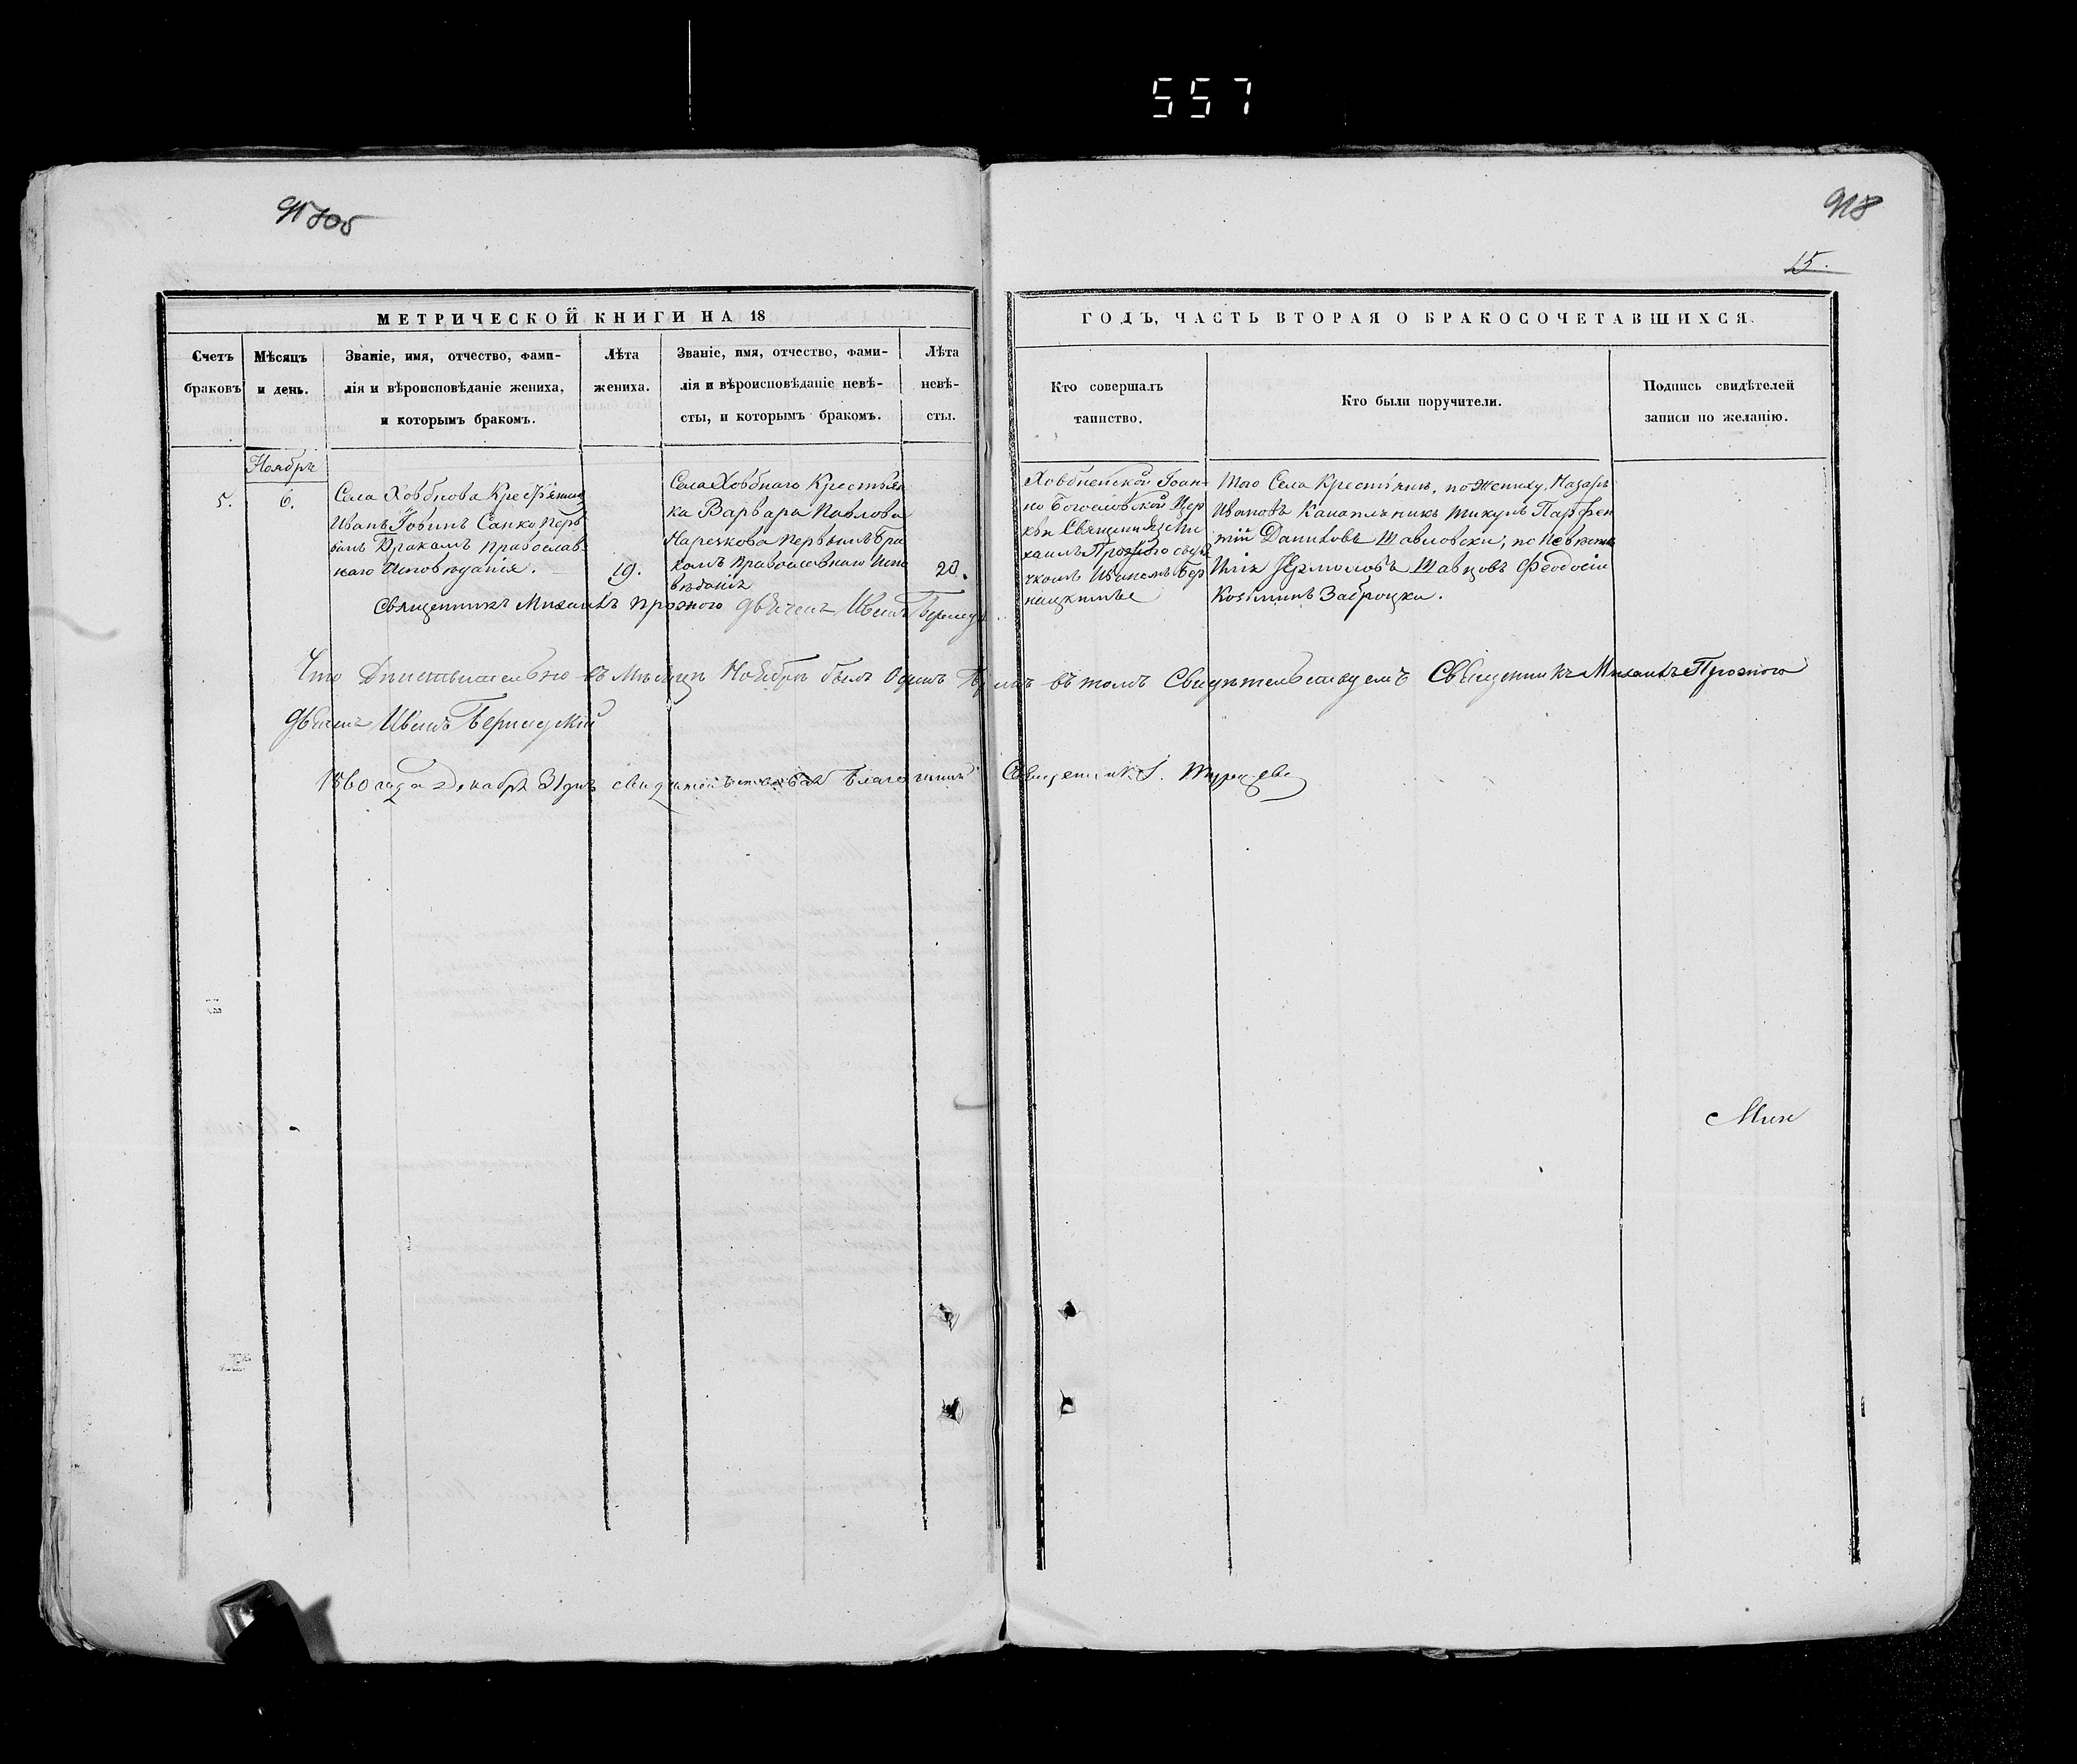 557
918
15.
МЕТРИЧЕСКОЙ КНИГИ НА 18
ГОДЪ, ЧАСТЬ ВТОРАЯ О БРАКОСОЧЕТАВШИХСЯ.
Счетъ
браковъ
Мѣсяцъ
и день.
Званіе, имя, отчество, фами-
лія и вѣроисповѣданіе жениха,
и которымъ бракомъ.
Лѣта
жениха.
Званіе, имя, отчество, фами-
лія и вѣроисповѣданіе невѣ-
сты, и которымъ бракомъ.
Лѣта
невѣ-
сты.
Кто совершалъ
таинство.
Кто были поручители.
Подпись свидѣтелей
записи по желанію.
Ноябрь
5.
6.
Села Ховбнова Крестянин
Иванъ Іовинъ Санко перв
вымъ Бракамъ православ
наго Исповѣданія.
19.
Села Ховбнаго Крестьян
ка Варвара Павлова
Наречкова первымъ бра
комъ православнаго Испо
вѣданія
20.
Ховбненской Іоан
но Богословской Цер
кви Священникъ Ми
хаилъ Прозного съ дья
чкомъ Иваномъ Бер
нацкимъ
того Села Крестяне, по Жениху, Назаръ
Ивановъ Канапльникъ Парфен
тій Даниловъ Шавловски, по Невѣсте
Илія Ермоловъ Шавцовъ Феодосій
Козминъ Заброцки.
Священникъ Михаилъ Прозного дьячекъ Иванъ Бернацк
Что Дѣйствительно въ Мѣсяцѣ Ноябрѣ былъ Одинъ Бракъ въ томъ Свидѣтельствуемъ Священникъ Михаилъ Прозного
дьячекъ Иванъ Бернацкій
1860 года Декабря 31 дня свидѣтельствовалъ Благочинный Священникъ І.
Мих